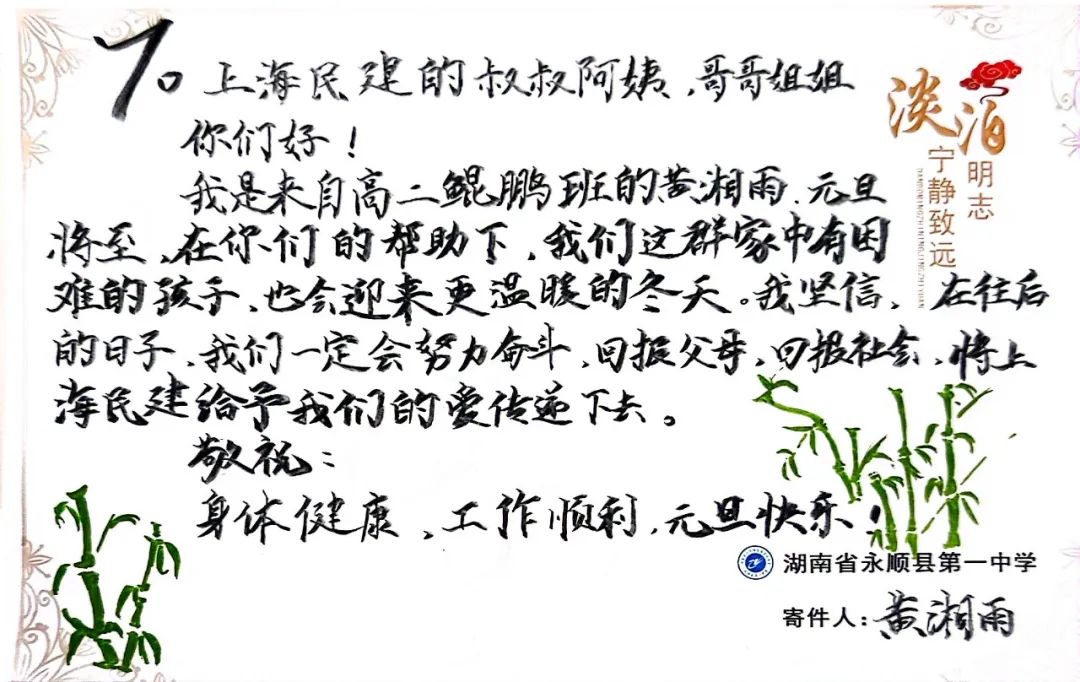 70
上海民建的叔叔阿姨,哥哥姐姐
你们好!
我是来自高二鲲鹏班的黄湘雨.元旦
将至,在你们的帮助下,我们这群家中有困
难的孩子,也会迎来更温暖的冬天。我坚信,在往后
的日子,我们一定会努力奋斗,回报父母,回报社会,将上
海民建给予我们的爱传递下去。
敬祝:
身体健康,工作顺利,元旦快乐!
淡泊
明志
宁静致远
湖南省永顺县第一中学
寄件人:黄湘雨